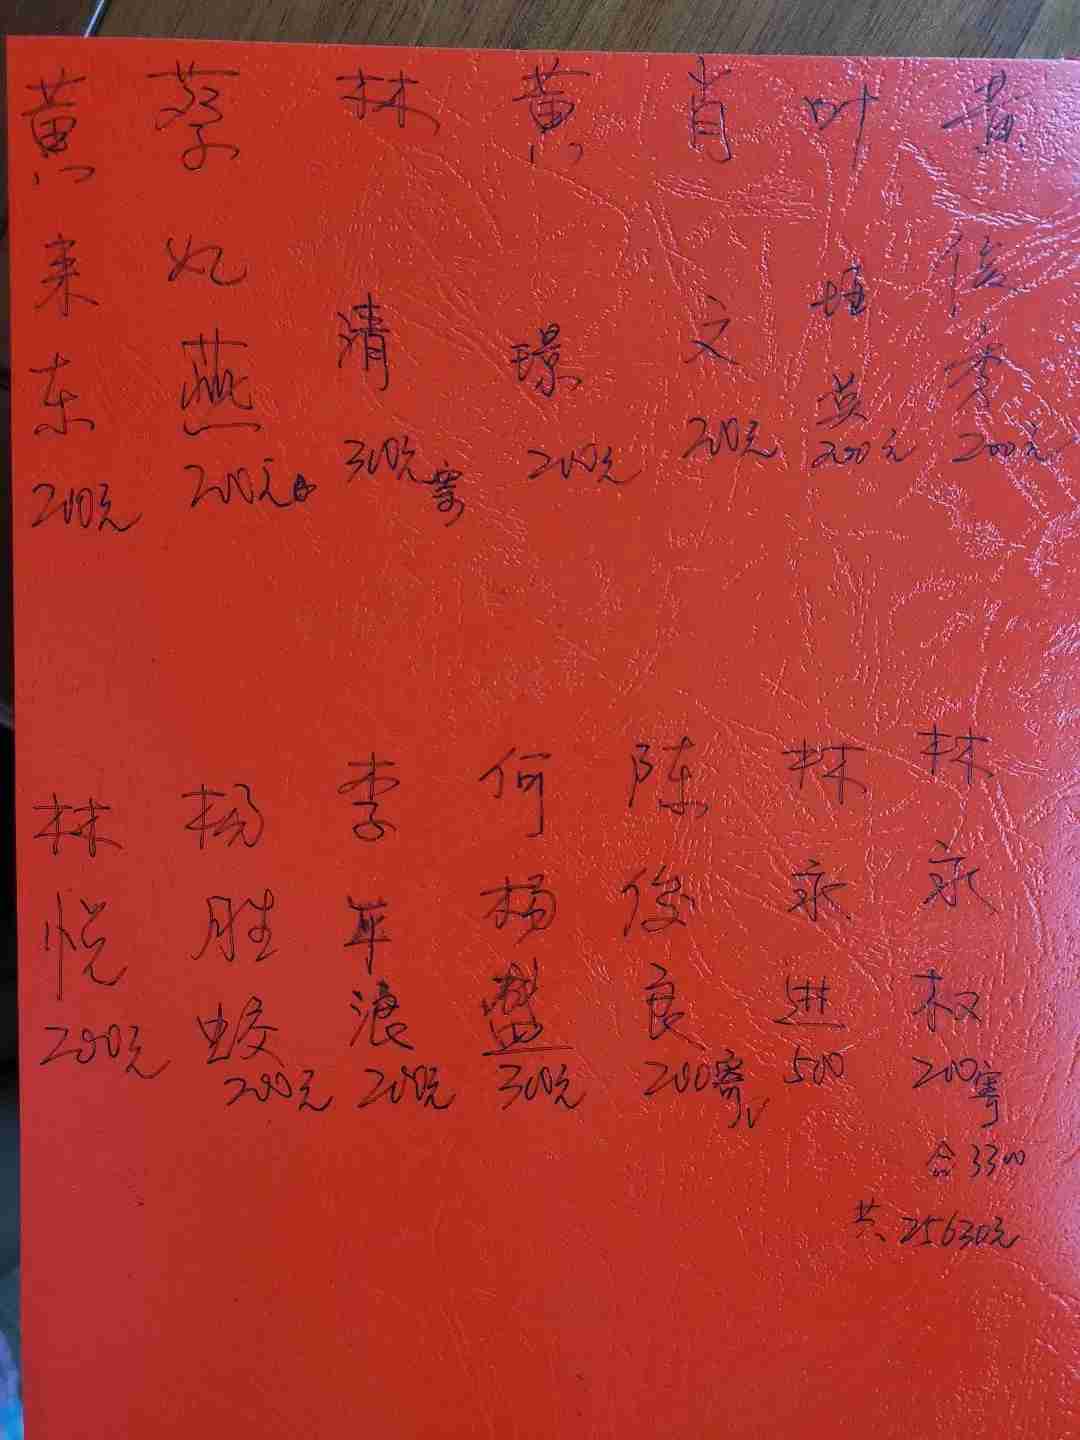 黄来东200元
蔡妃燕200元
林清300元寄
黄璟200元
肖文200元
叶200元
黄俊200元
林悦200元
杨胜蛟200元
李平浪200元
何杨盘300元
陈俊良200寄
林永进500
林永权200寄
合3300
共25630元